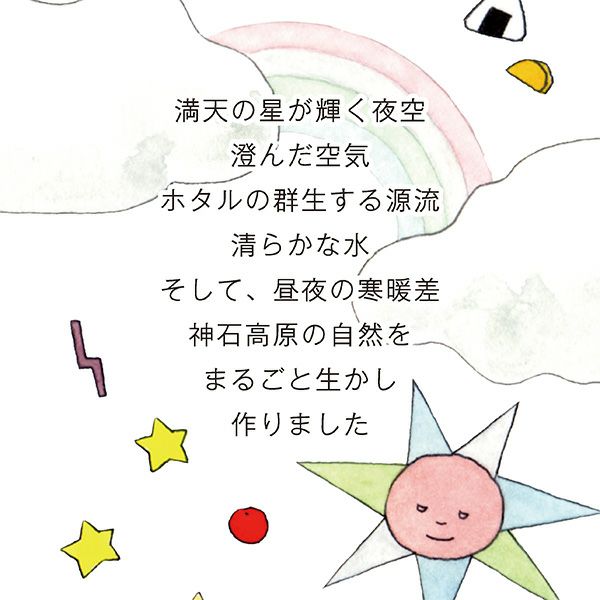 満天の星が輝く夜空
澄んだ空気
ホタルの群生する源流
清らかな水
そして、昼夜の寒暖差
神石高原の自然を
まるごと生かし
作りました